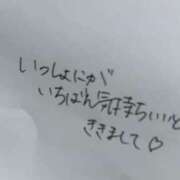 いっしょにが
いちばん気持ちいいと
ききまして♡